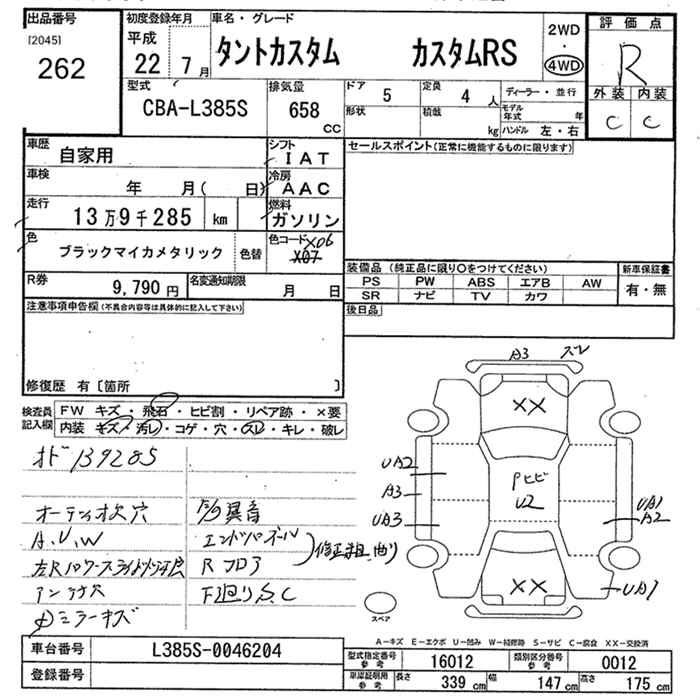 出品番号
[2045]
262
初度登録年月
平成
22年 7月
車名・グレード
タントカスタム カスタムRS
2WD
・
4WD
評価点
R
外装 内装
C C
型式
CBA-L385S
排気量
658
CC
ドア
5
定員
4 人
形状
積載
kg
ディーラー・並行
モデル年式 年
ハンドル 左・右
車歴
自家用
シフト
IAT
車検
年 月( 日)
冷房
AAC
走行
13万9千285 km
燃料
ガソリン
色
ブラックマイカメタリック
色替
色コード X06
X07
R券
9,790 円
名変通知期限
月 日
セールスポイント(正常に機能するものに限ります)
装備品 (純正品に限り○をつけてください)
PS PW ABS エアB AW
SR ナビ TV カワ
新車保証書
有・無
後日品
注意事項申告欄(不具合内容等は具体的に記入して下さい)
修復歴 有〔箇所 〕
検査員記入欄
FW キズ・飛石・ヒビ割・リペア跡・×要
内装 キズ・汚レ・コゲ・穴・スレ・キレ・破レ
オド139285
オーデッオ欠 穴
A、U、W
アンテナ穴
ミラーキズ
異音
エンドパネル
Rフロア
修正 曲り
F廻りS.C
A3 ズレ
XX
UA2
A3
UA3
Pヒビ
U2
UA1
A2
XX
UA1
スペア
A−キズ E−エクボ U−凹み W−補修跡 S−サビ C−腐食 XX−交換済
車台番号
L385S-0046204
登録番号
型式指定番号
参考
16012
類別区分番号
参考
0012
車庫証明用
参考
長さ 339 cm
幅 147 cm
高さ 175 cm